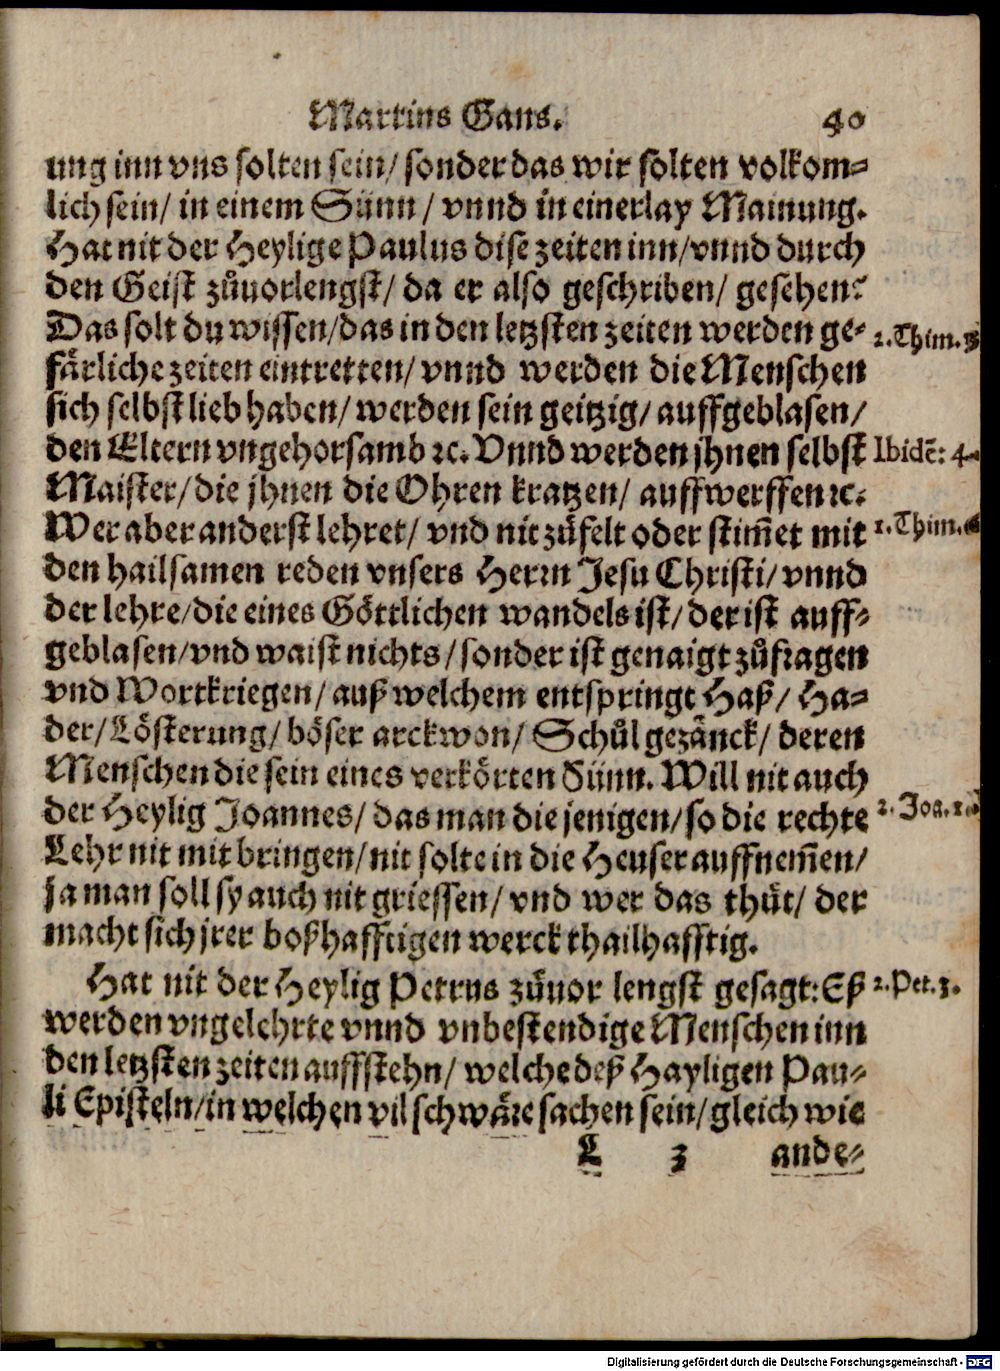 Martins Gans. 40
ung inn vns solten sein/ sonder das wir solten volkom⸗
lich sein/ in einem Sünn/ vnnd in einerlay Mainung.
Hat nit der Heylige Paulus dise zeiten inn/ vnnd durch
den Geist zůuorlengst/ da er also geschriben/ gesehen?
Das solt du wissen/ das in den letzsten zeiten werden ge⸗ 2. Thim. 3
färliche zeiten eintretten/ vnnd werden die Menschen
sich selbst lieb haben/ werden sein geitzig/ auffgeblasen/
den Eltern vngehorsamb ꝛc. Vnnd werden jhnen selbst Ibidē: 4.
Maister/ die jhnen die Ohren kratzen/ auffwerffen ꝛc.
Wer aber anderst lehret/ vnd nit zůfelt oder stim̄et mit 1. Thim. 6
den hailsamen reden vnsers Herrn Jesu Christi/ vnnd
der lehre/ die eines Göttlichen wandels ist/ der ist auff⸗
geblasen/ vnd waist nichts/ sonder ist genaigt zůfragen
vnd Wortkriegen/ auß welchem entspringt Haß/ Ha⸗
der/ Lösterung/ böser arckwon/ Schůlgezänck/ deren
Menschen die sein eines verkörten Sünn. Will nit auch
der Heylig Joannes/ das man die jenigen/ so die rechte 2. Joa. 1.
Lehr nit mit bringen/ nit solte in die Heuser auffnem̄en/
ja man soll sy auch nit griessen/ vnd wer das thůt/ der
macht sich jrer boßhafftigen werck thailhafftig.
Hat nit der Heylig Petrus zůuor lengst gesagt: Eß 2. Pet. 3.
werden vngelehrte vnnd vnbestendige Menschen inn
den letzsten zeiten auffstehn/ welche deß Hayligen Pau⸗
li Episteln/ in welchen vil schwäre sachen sein/ gleich wie
L 3 ande⸗
Digitalisierung gefördert durch die Deutsche Forschungsgemeinschaft - DFG